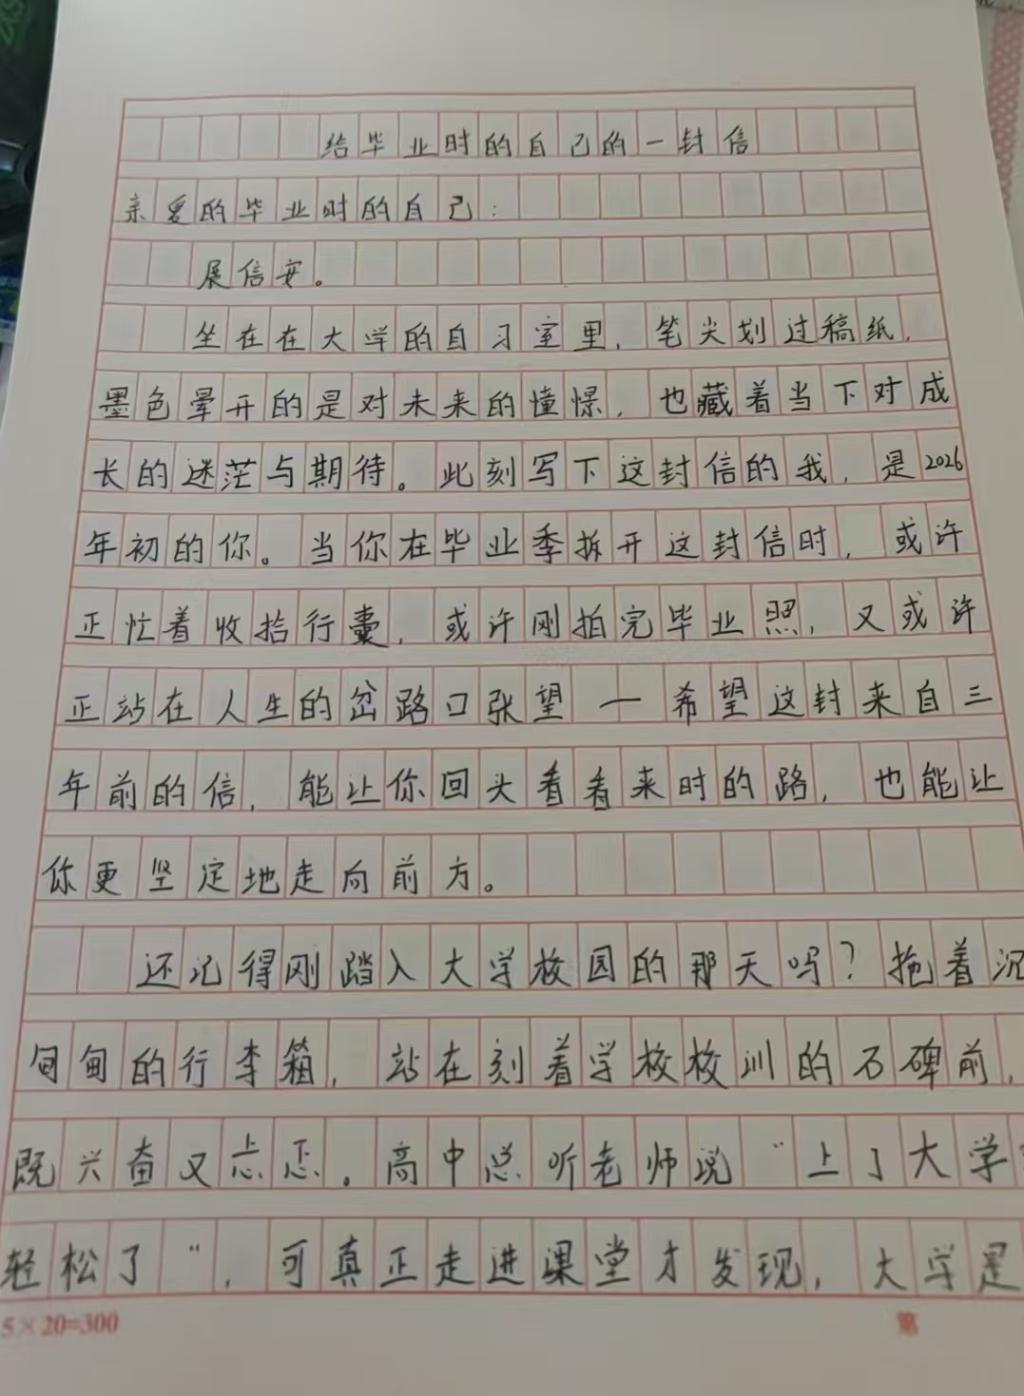 给毕业时的自己的一封信
亲爱的毕业时的自己：
展信安。
坐在在大学的自习室里，笔尖划过稿纸，
墨色晕开的是对未来的憧憬，也藏着当下对成
长的迷茫与期待。此刻写下这封信的我，是2026
年初的你。当你在毕业季拆开这封信时，或许
正忙着收拾行囊，或许刚拍完毕业照，又或许
正站在人生的岔路口张望—希望这封来自三
年前的信，能让你回头看看来时的路，也能让
你更坚定地走向前方。
还记得刚踏入大学校园的那天吗？拖着沉
甸甸的行李箱，站在刻着学校校训的石碑前，
既兴奋又忐忑。高中总听老师说“上了大学
轻松了”，可真正走进课堂才发现，大学是
5×20=300
第